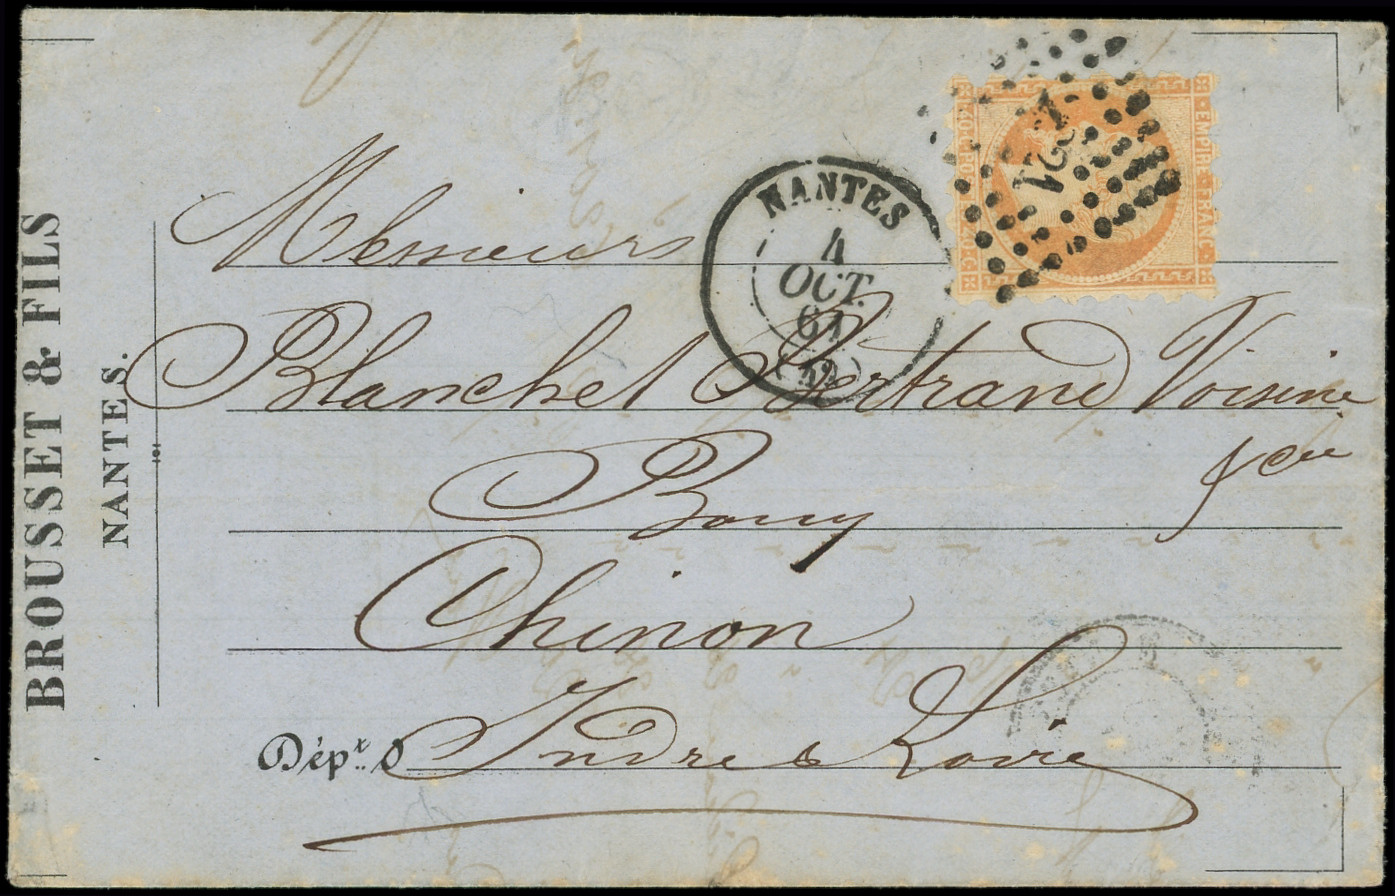 BROUSSET & FILS
NANTES.
Messieurs
Blanchet Bertrand Voisine
Bourg
Chinon
Dépt. d Indre & Loire
NANTES
4
OCT.
61
EMPIRE FRANC.